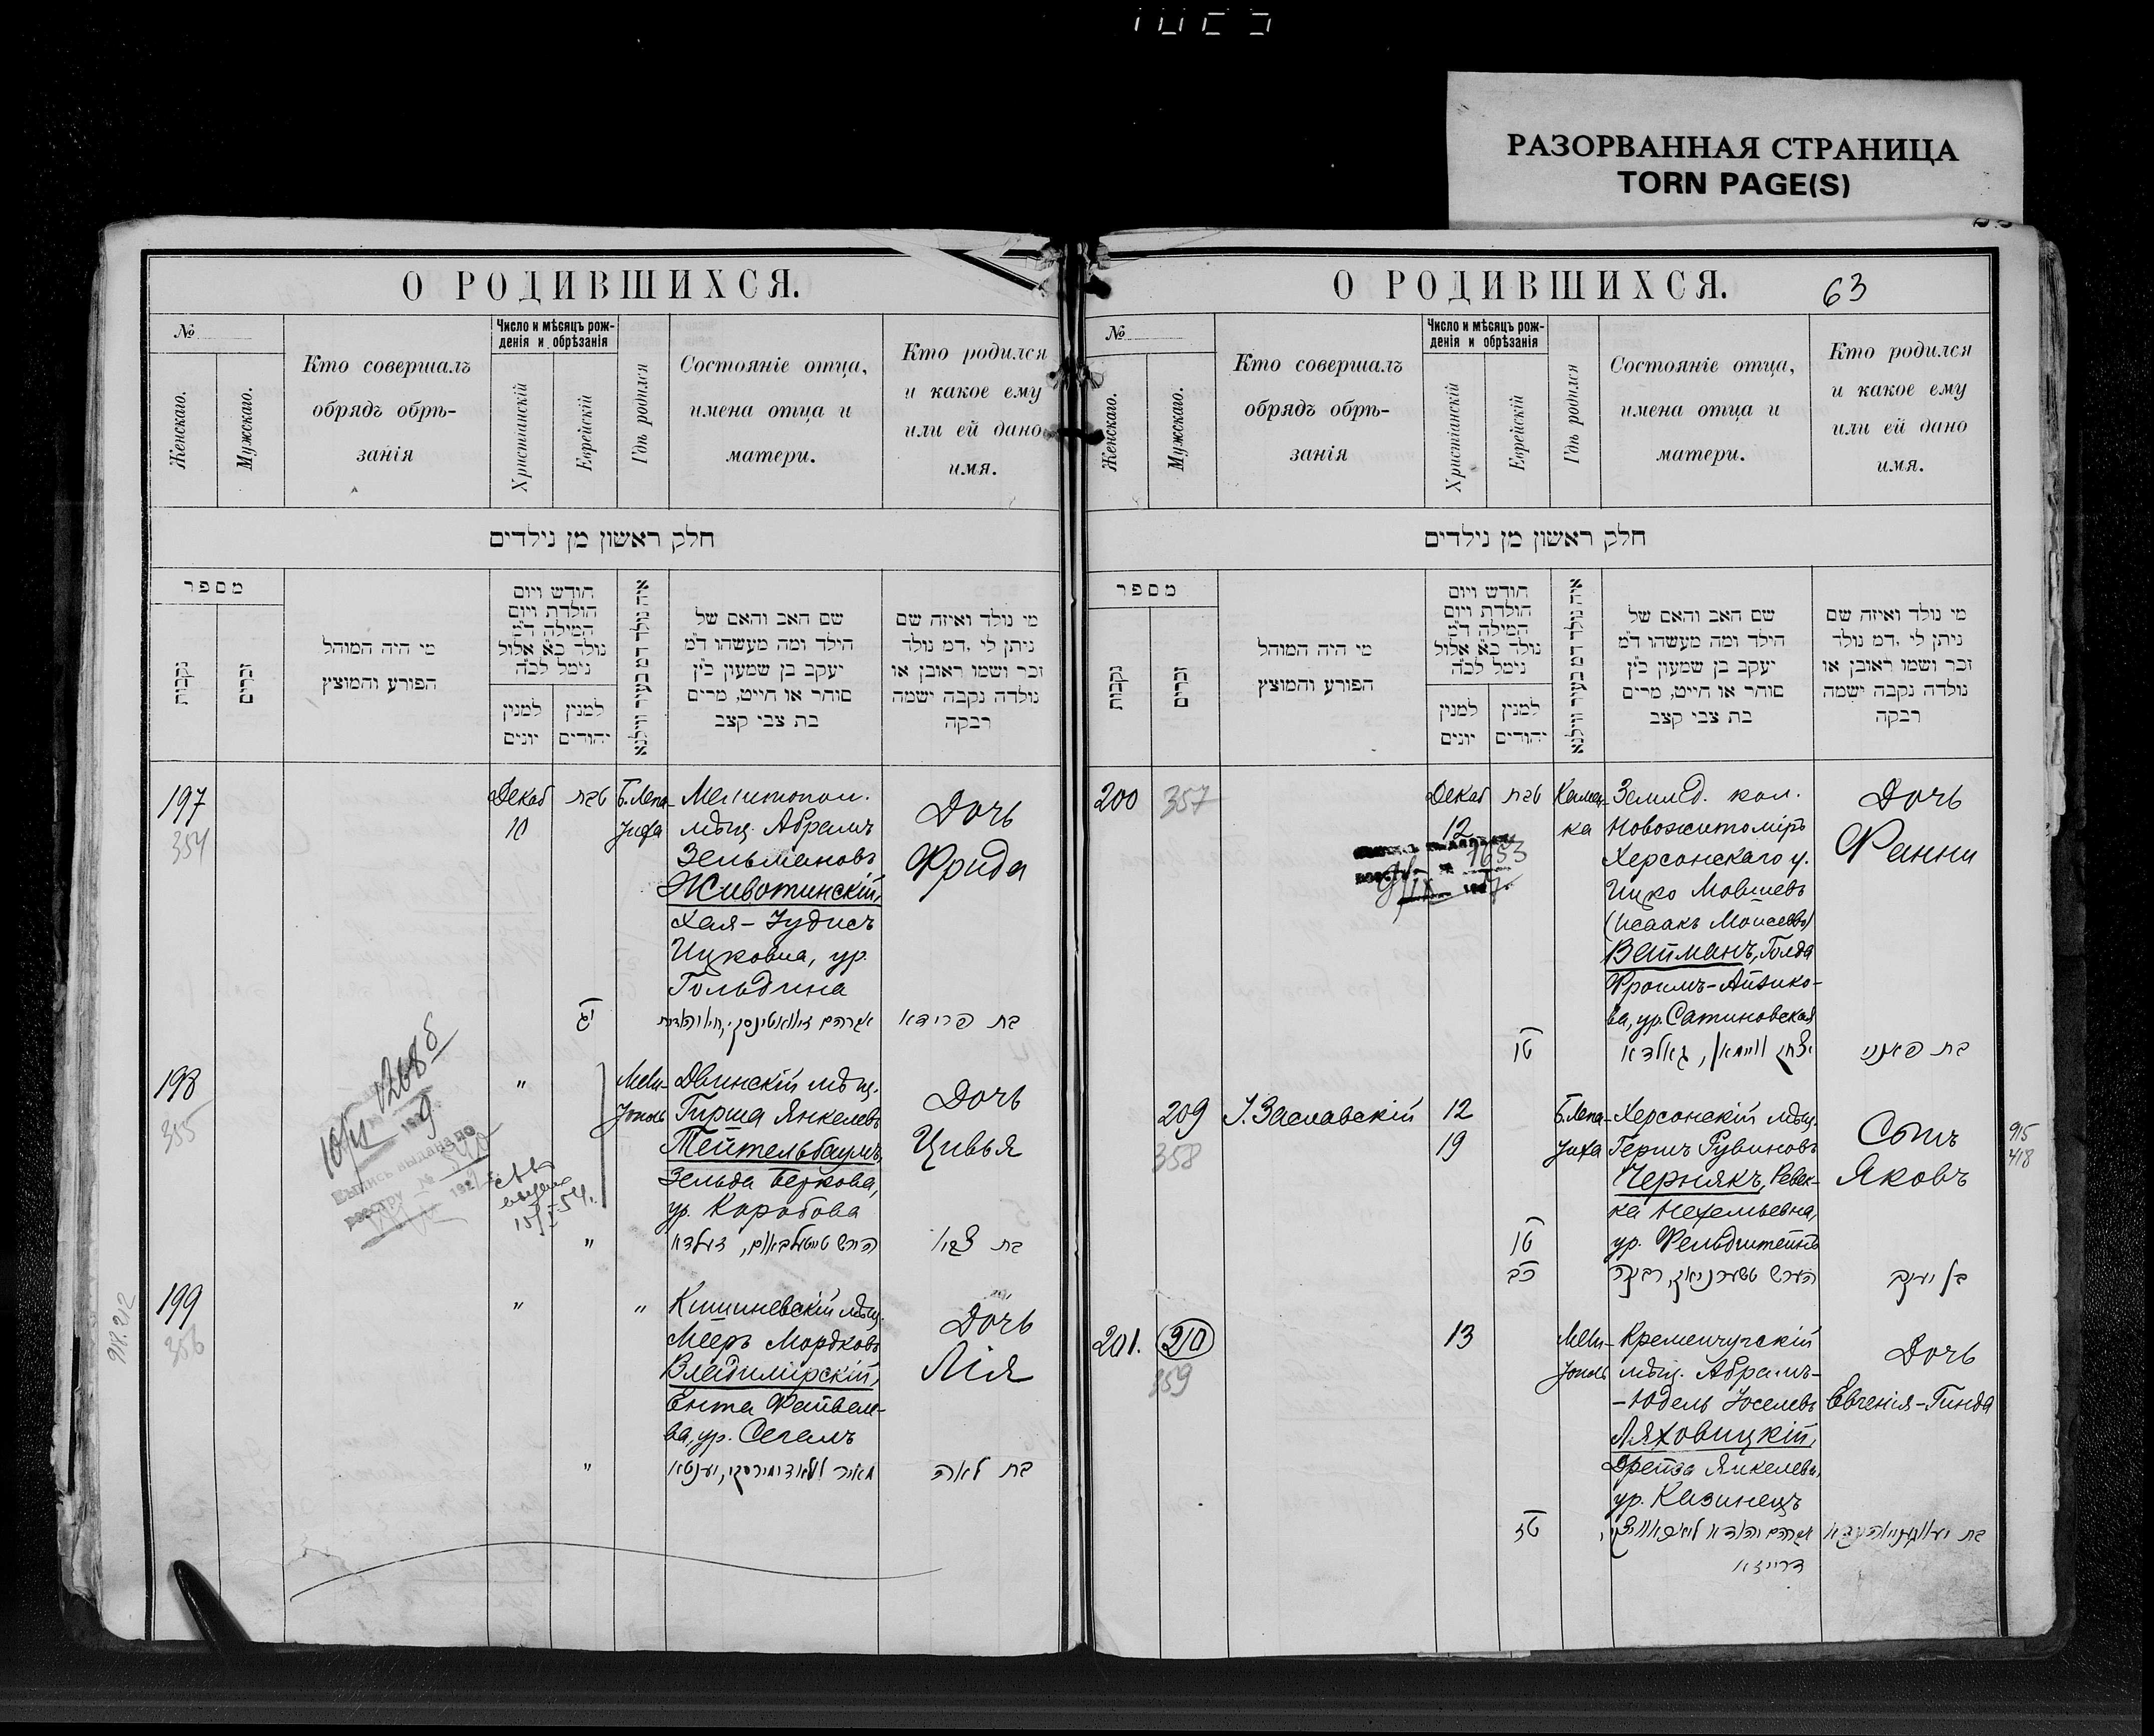 РАЗОРВАННАЯ СТРАНИЦА
TORN PAGE(S)
О РОДИВШИХСЯ.
№
Женскаго.
Мужскаго.
Кто совершалъ
обрядъ обрѣ-
занія
Число и мѣсяцъ рож-
денія и обрѣзанія
Христіанскій
Еврейскій
Годъ родился
Состояніе отца,
имена отца и
матери.
Кто родился
и какое ему
или ей дано
имя.
חלק ראשון מן נילדים
מספר
נקבות
זכרים
מי היה המוהל
הפורע והמוצץ
חודש ויום
הולדת ויום
המילה ד״מ
נולד כ״א אלול
נימל לכ״ה
למנין
יונים
למנין
יהודים
שם האב והאם של
הילד ומה מעשהו ד״מ
יעקב בן שמעון כ״ץ
סוחר או חייט, מרים
בת צבי קצב
מי נולד ואיזה שם
ניתן לו, דמ נולד
זכר ושמו ראובן או
נולדה נקבה ישמה
רבקה
197
354
Декаб
10
טבת
Б. Лепа-
тиха
Мелитопол.
мѣщ. Абрамъ
Зельмановъ
Животинскій,
Хая-Іудисъ
Ицковна, ур.
Гольдина
Дочь
Фрида
יג
בת פרידא
198
355
"
Мели-
тополь
Двинскій мѣщ.
Гирша Янкелевъ
Тейтельбаумъ,
Зельда Беркова,
ур. Коробова
Дочь
Цивья
"
הירש טייטעלבאום, זעלדא
בת צביי
199
356
"
"
Кишиневскій мѣщ.
Мееръ Мордковъ
Владимірскій,
Ента Файвеле-
ва, ур. Сегалъ
Дочь
Лія
"
מאיר וולאדימירסקי, יענטא
בת לאה
О РОДИВШИХСЯ.
63
№
Женскаго.
Мужскаго.
Кто совершалъ
обрядъ обрѣ-
занія
Число и мѣсяцъ рож-
денія и обрѣзанія
Христіанскій
Еврейскій
Годъ родился
Состояніе отца,
имена отца и
матери.
Кто родился
и какое ему
или ей дано
имя.
חלק ראשון מן נילדים
מספר
נקבות
זכרים
מי היה המוהל
הפורע והמוצץ
חודש ויום
הולדת ויום
המילה ד״מ
נולד כ״א אלול
נימל לכ״ה
למנין
יונים
למנין
יהודים
שם האב והאם של
הילד ומה מעשהו ד״מ
יעקב בן שמעון כ״ץ
סוחר או חייט, מרים
בת צבי קצב
מי נולד ואיזה שם
ניתן לו, דמ נולד
זכר ושמו ראובן או
נולדה נקבה ישמה
רבקה
200
357
Декаб
12
טבת
Камен-
ка
Землед. кол.
Новожитоміръ
Херсонскаго у.
Ицко Мовшевъ
(Исаакъ Моисеевъ)
Вайманъ, Голда
Фроимъ-Айзико-
ва, ур. Сатиновская
Дочь
Фанни
טו
יצחק ווימאן, גאלדא
בת פאני
209
358
І. Заславскій
12
19
Б. Лепа-
тиха
Херсонскій мѣщ.
Гершъ Рувиновъ
Чернякъ, Ревек-
ка Нехемьевна,
ур. Фельдштейнъ
Сынъ
Яковъ
915
418
טו
כב
הערש טשערניאק, רבקה
בן יעקב
201.
210
359
13
Мели-
тополь
Кременчугскій
мѣщ. Абрамъ-
-Юдель Іоселевъ
Ляховицкій,
Дрейза Янкелева,
ур. Казинецъ
Дочь
Евгенія-Гинда
טז
אברהם יהודא ליאכאוויצקי,
דרייזא